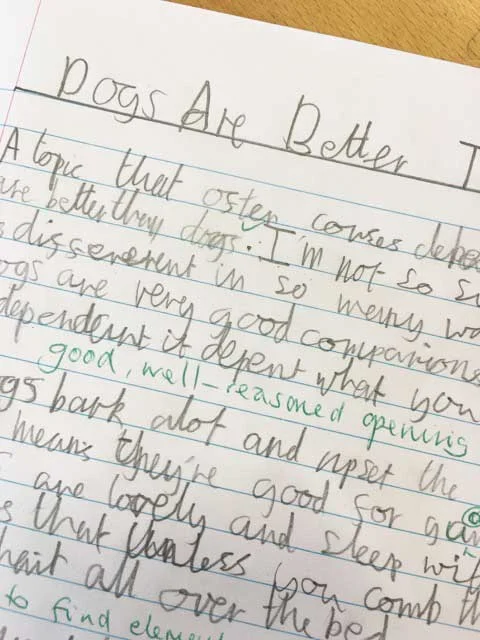 Dogs Are Better T
A topic that osten couses debe
are better than dogs. I'm not so su
disserent in so many wa
ogs are very good companions
dependent it depent what you
good, well-reasoned opening
ogs bark alot and upset the
means they're good for gua
are lovely and sleep wit
s that unless you comb th
hair all over the bed
to find element